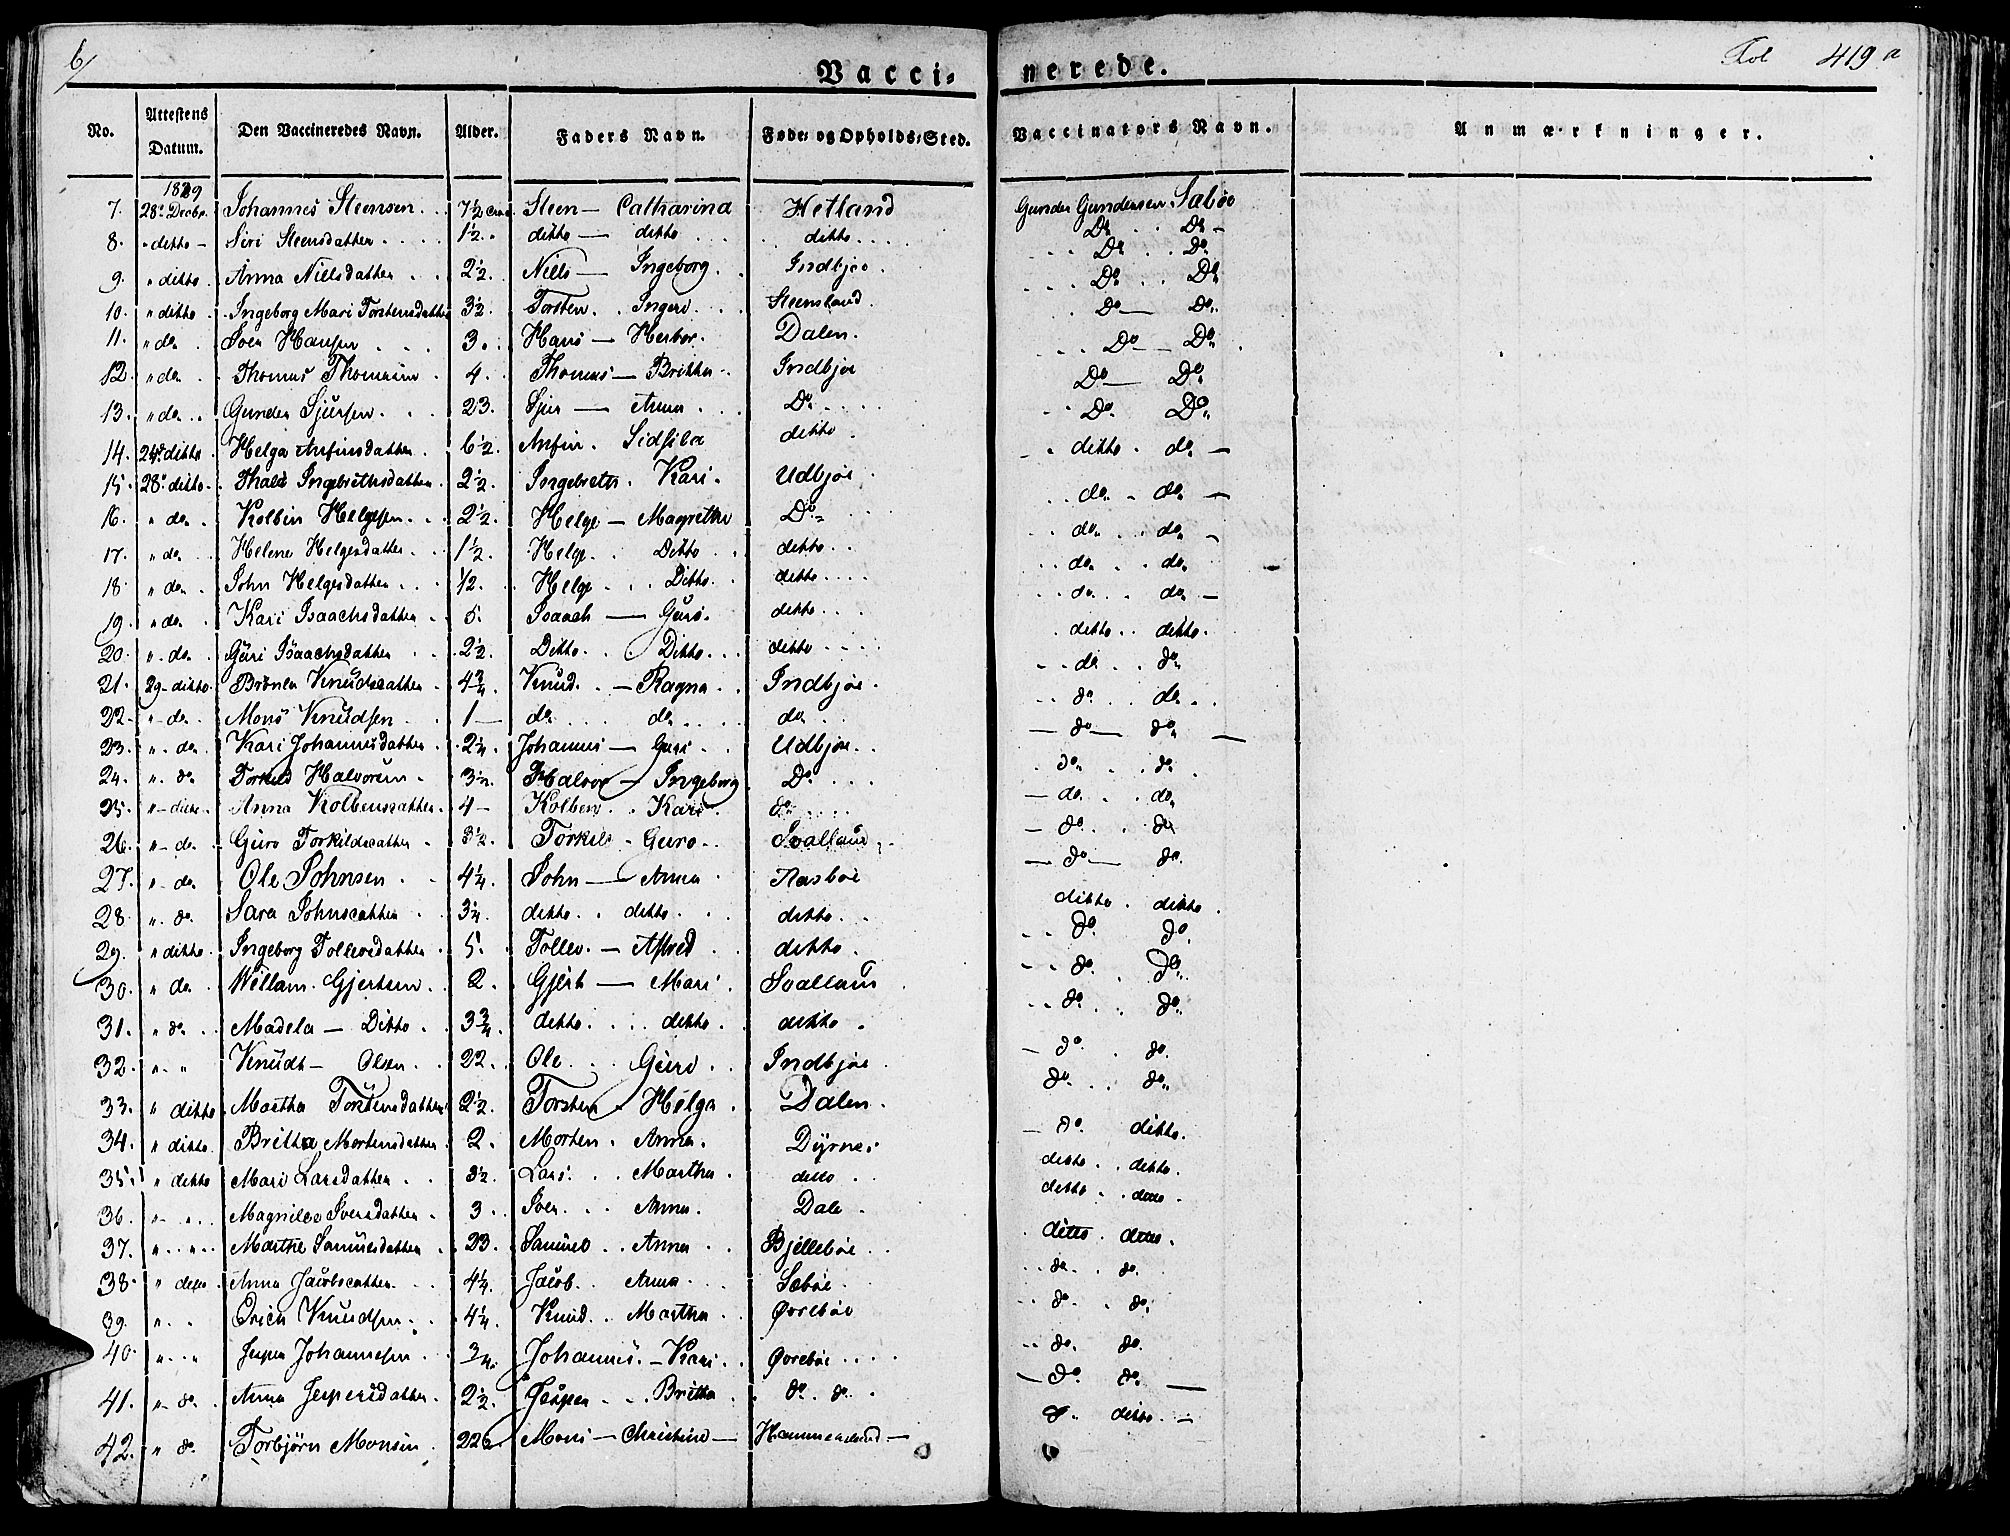 6/
Vacci- nerede.
Fol 419 a
No. Attestens Datum. Den Vaccineredes Navn. Alder. Faders Navn. Føde- og Opholds-Sted. Vaccinators Navn. Anmærkninger.
1829
7. 28de Decbr. Johannes Steensen 7½ Steen — Catharina Hetland Gunder Gundersen Sæbøe
8. " ditto — Siri Steensdatter 1½ ditto — ditto ditto Do Do
9. " ditto Anna Nielsdatter 2½ Niels — Ingeborg Indbjoe Do Do
10. " ditto Ingeborg Mari Torstensdatter 3½ Torsten Ingeri Steensland Do Do
11. " do Sven Hansen 3. Hans — Herbor Dalen Do Do
12. " do Thomas Thomesen 4. Thomas — Britha Indbjoe Do Do
13. " do Gunder Sjursen 23. Sjur — Anna Do Do Do
14. 24de ditto Helga Anfinsdatter 6½ Anfin Sidsela ditto Do Do
15. 28de ditto Ingebrethsdatter 2½ Ingebreth Kari Udbjoe ditto do
16. " do Kolbin Helgesen 2½ Helge — Magrethe Do do do
17. " do Helene Helgesdatter 1½ Helge Ditto ditto do do
18. " do John Helgesdatter ½ Helge Ditto ditto do do
19. " do Kari Isaachsdatter 5. Isaach — Guro ditto do do
20. " do Guri Isaachsdatter 2½ Ditto Ditto ditto ditto ditto
21. 29 ditto Knudsdatter 4¾ Knud — Ragna Indbjoe do do
22. " do Mons Knudsen 1 — do do do do do
23. " do Kari Johannesdatter 2¼ Johannes — Guri Udbjoe do do
24. " do Halvorsen 3½ Halvor — Ingeborg Do do do
25. " ditto Anna Kolbensdatter 4 — Kolben Kari do do do
26. " do Guro Torkildsdatter 3½ Torkild Guro Svalland do do
27. " do Ole Johnsen 4¼ John — Anna Aasboe do do
28. " do Sara Johnsdatter 3¼ ditto ditto ditto ditto ditto
29. " ditto Ingeborg Tollevsdatter 5. Tollev — Astred ditto do do
30. " do Willam Gjertsen 2. Gjert — Mari Svalland do do
31. " do Madela — Ditto 3¾ ditto ditto ditto do do
32. " " Knudt — Olsen 22. Ole Guro Indbjoe do do
33. " ditto Martha Torstensdatter 2½ Torsten Helga Dalen do do
34. " ditto Britha Mortensdatter 2. Morten Anna Dyrnes do ditto
35. " ditto Mari Larsdatter Lars Martha ditto ditto ditto
36. " " Magnilde Svensdatter 3 Sven Anna Dale ditto ditto
37. " " Marthe Samuelsdatter 23. Samuel Anna Bjellebøe ditto ditto
38. " ditto Anna Jacobsdatter 4¼ Jacob Anna Sæbøe do do
39. " " Erich Knudsen 4¼ Knud Martha Øvrebøe do do
40. " " Jesper Johannesen ¾ Johannes — Kari Øvrebøe do do
41. " do Anna Jespersdatter 2½ Jesper Britha do do do do
42. " do Torbjørn Monsen Mons — Christine — do ditto